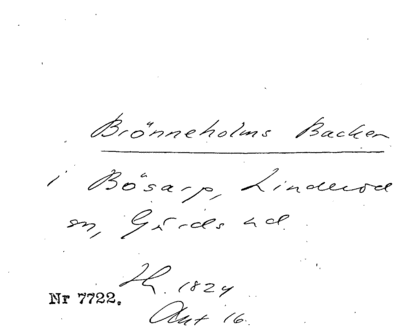 Brönneholms Backen
i Bösarp, Linderöd
sn, Gärds hd.
Th. 1824
Nr 7722.
Akt 16.